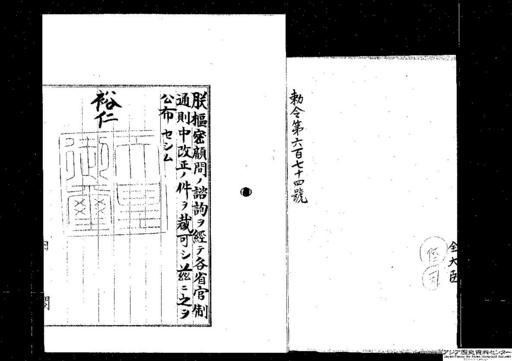 勅令第六百七十四號
朕樞密顧問ノ諮詢ヲ經テ各省官制
通則中改正ノ件ヲ裁可シ茲ニ之ヲ
公布セシム
裕仁
天皇御璽
全大臣
内閣
アジア歴史資料センター